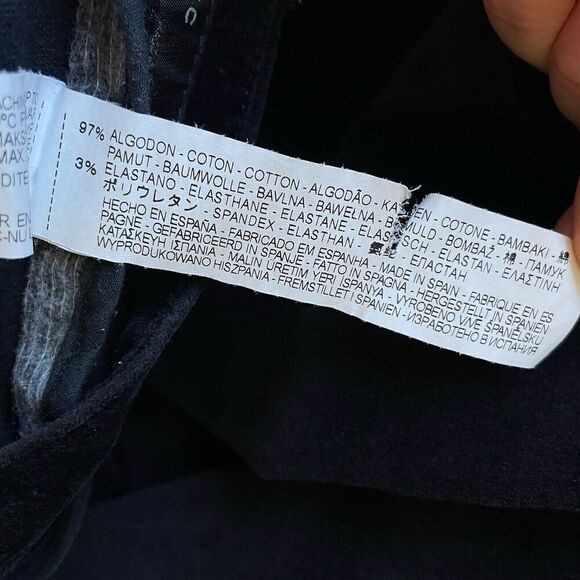 97% ALGODON - COTON - COTTON - ALGODÃO - KA EN - COTONE - BAMBAKI - 綿
PAMUT - BAUMWOLLE - BAVLNA - BAWELNA - B MULD - BOMBAZ - 棉 - ПАМУК
3% ELASTANO - ELASTHANE - ELASTANE - ELAST SCH - ELASTAN - ΕΛΑΣΤΙΝΗ
ポリウレタン - SPANDEX - ELASTHAN - ЕЛАСТАН
HECHO EN ESPAÑA - FABRICADO EM ESPANHA - MADE IN SPAIN - FABRIQUE EN ES
PAGNE - GEFABRICEERD IN SPANJE - FATTO IN SPAGNA - HERGESTELLT IN SPANIEN
ΚΑΤΑΣΚΕΥΗ ΙΣΠΑΝΙΑ - MALIN ÜRETIM YERI ISPANYA - VYROBENO VVE SPANĚLSKU
WYPRODUKOWANO HISZPANIA - FREMSTILLET I SPANIEN - ИЗРАБОТЕНО В ИСПАНИЯ